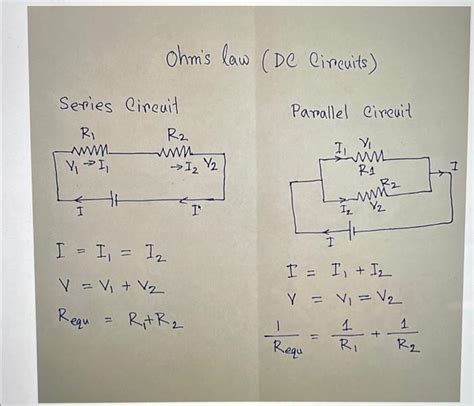 Ohm's law (DC Circuits)
Series Circuit
R1 R2
V1 → I1 → I2 V2
I I
I = I1 = I2
V = V1 + V2
Requ = R1 + R2
Parallel Circuit
I1 V1
R1
R2
I2 V2
I
I
I = I1 + I2
V = V1 = V2
1/Requ = 1/R1 + 1/R2